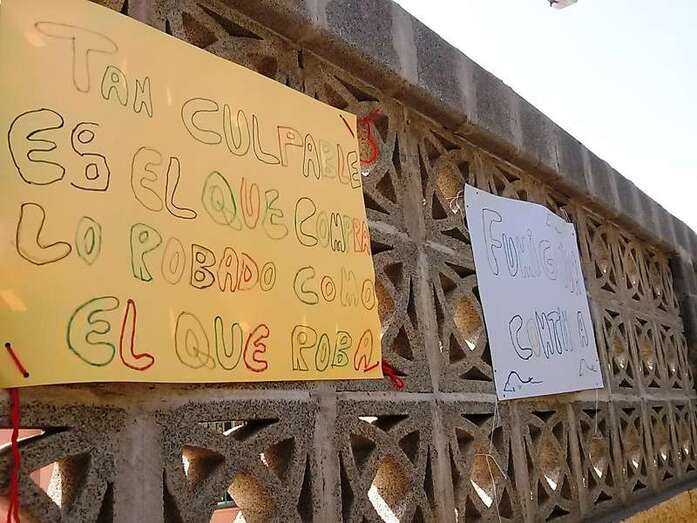 TAN CULPABLE
ES EL QUE COMPRA
LO ROBADO COMO
EL QUE ROBA
FUMIGAR
CONTRA